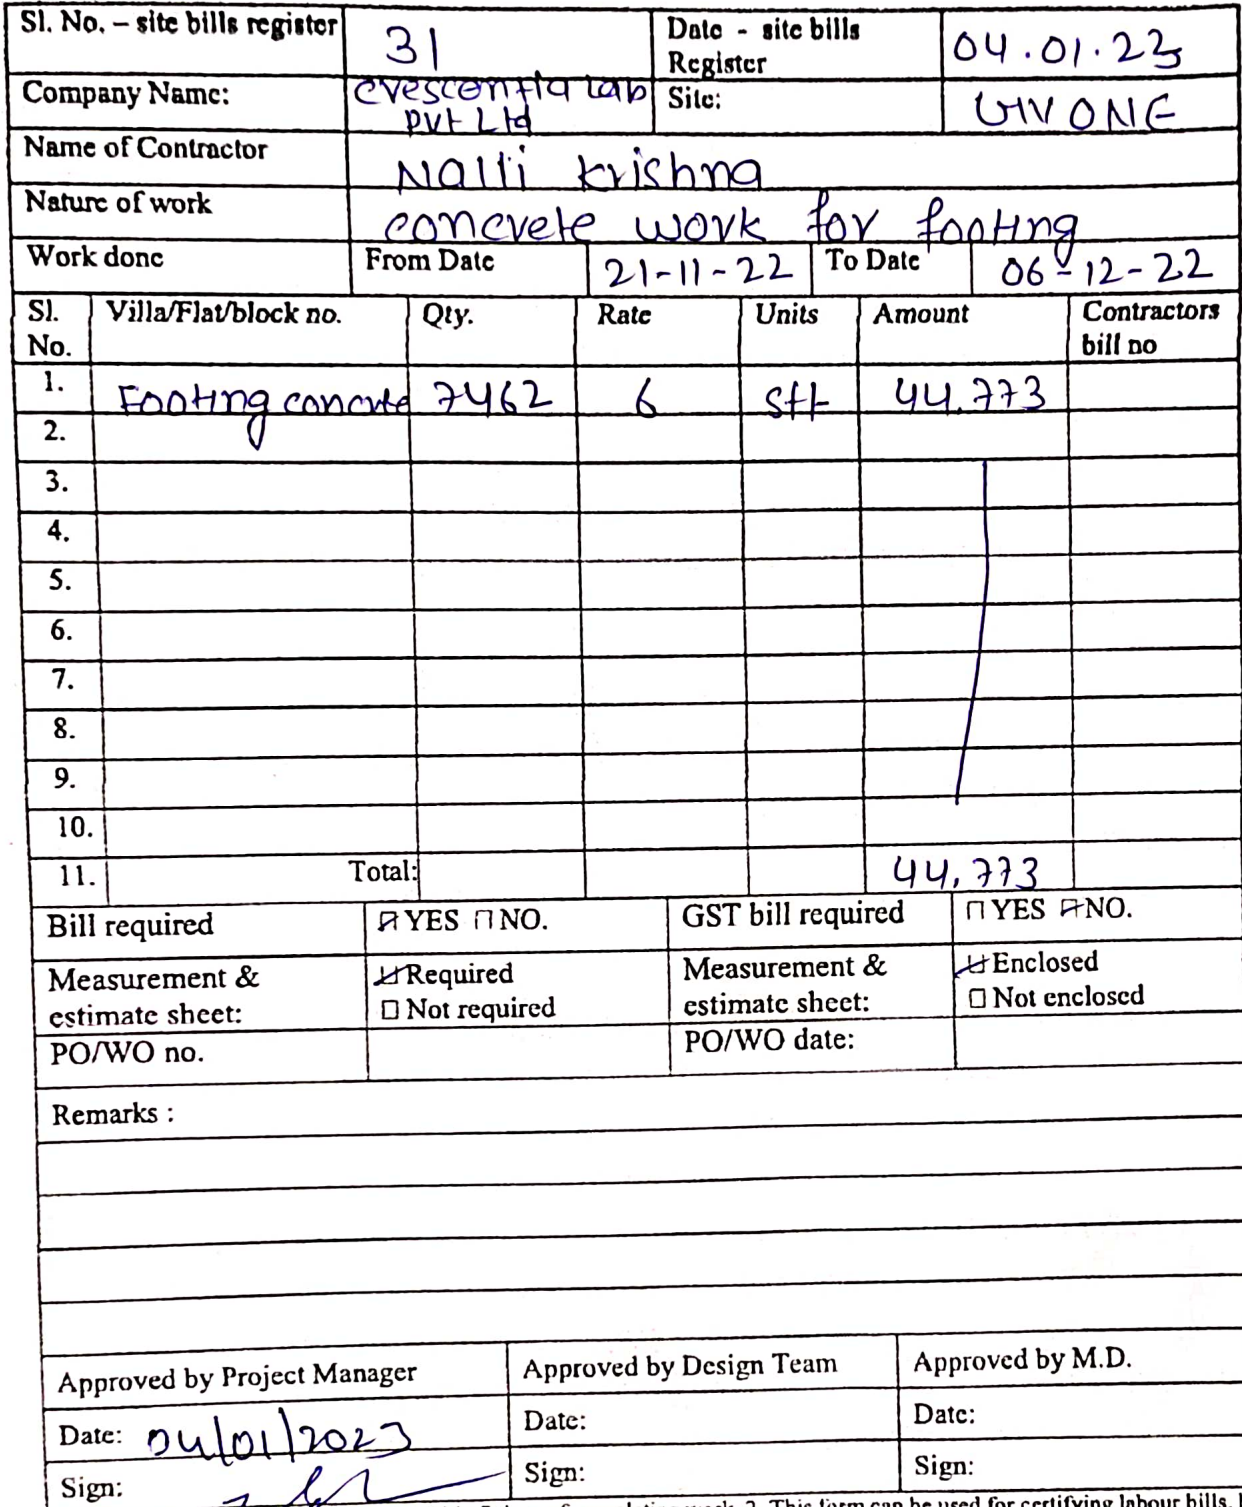 Sl. No. – site bills register 31 Date - site bills Register 04.01.23
Company Name: Crescentia Lab Pvt Ltd Site: GIV ONE
Name of Contractor Nalli Krishna
Nature of work concrete work for footing
Work done From Date 21-11-22 To Date 06-12-22
Sl. No. Villa/Flat/block no. Qty. Rate Units Amount Contractors bill no
1. Footing concrete 7462 6 sft 44,773
2.
3.
4.
5.
6.
7.
8.
9.
10.
11. Total: 44,773
Bill required YES NO. GST bill required YES NO.
Measurement & estimate sheet: Required Not required Measurement & estimate sheet: Enclosed Not enclosed
PO/WO no. PO/WO date:
Remarks :
Approved by Project Manager Approved by Design Team Approved by M.D.
Date: 04/01/2023 Date: Date:
Sign: Sign: Sign:
2. This form can be used for certifying labour bills.